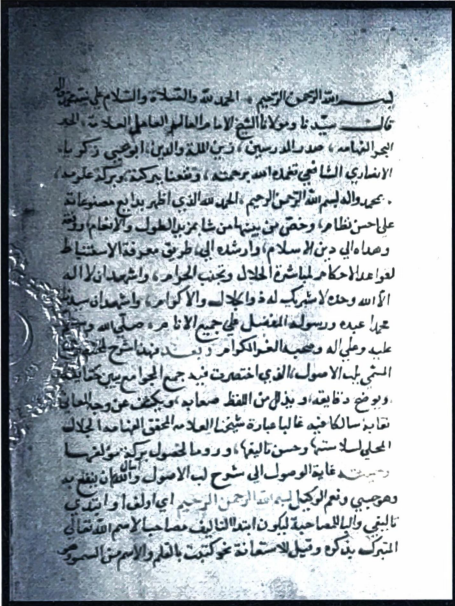 بسم الله الرحمن الرحيم الحمد لله والصلاة والسلام على نبيه محمد واله
قال سيدنا ومولانا الشيخ الامام العالم العامل العلامة الحبر
البحر الفهامه صدر المدرسين زين الملة والدين ابو يحيى زكريا
الانصاري الشافعي تغمده الله برحمته ونفعنا ببركته وبركة علومه
بمحمد واله بسم الله الرحمن الرحيم الحمد لله الذي اظهر بدايع مصنوعاته
على احسن نظام وخص من بينها من شا بمزيد الطول والانعام ووفقه
وهداه الى دين الاسلام وارشده الى طريق معرفة الاستنباط
لقواعد الاحكام لمباشرة الحلال وتجنب الحرام واشهد ان لا اله
الا الله وحده لا شريك له ذو الجلال والاكرام واشهد ان سيدنا
محمدا عبده ورسوله المفضل على جميع الانام صلى الله وسلم
عليه وعلى اله وصحبه الغر الكرام وبعد فهذا شرح لمختصري
المسمى بلب الاصول الذي اختصرت فيه جمع الجوامع يبين حقايقه
ويوضح دقايقه ويذلل من اللفظ صعابه ويكشف عن وجه المعاني
نقابه سالكا فيه غالبا عبارة شيخنا العلامه المحقق الفهامه الجلال
المحلي لسلاستها وحسن تاليفها وروما لحصول بركة مولفها
وسميته غاية الوصول الى شرح لب الاصول والله اسال ان ينفع به
وهو حسبي ونعم الوكيل بسم الله الرحمن الرحيم اي اولف او ابتدي
تاليفي والبا للمصاحبة ليكون ابتدا التاليف مصاحبا لاسم الله تعالى
المتبرك بذكره وقيل للاستعانة نحو كتبت بالقلم والاسم من السمو وهو